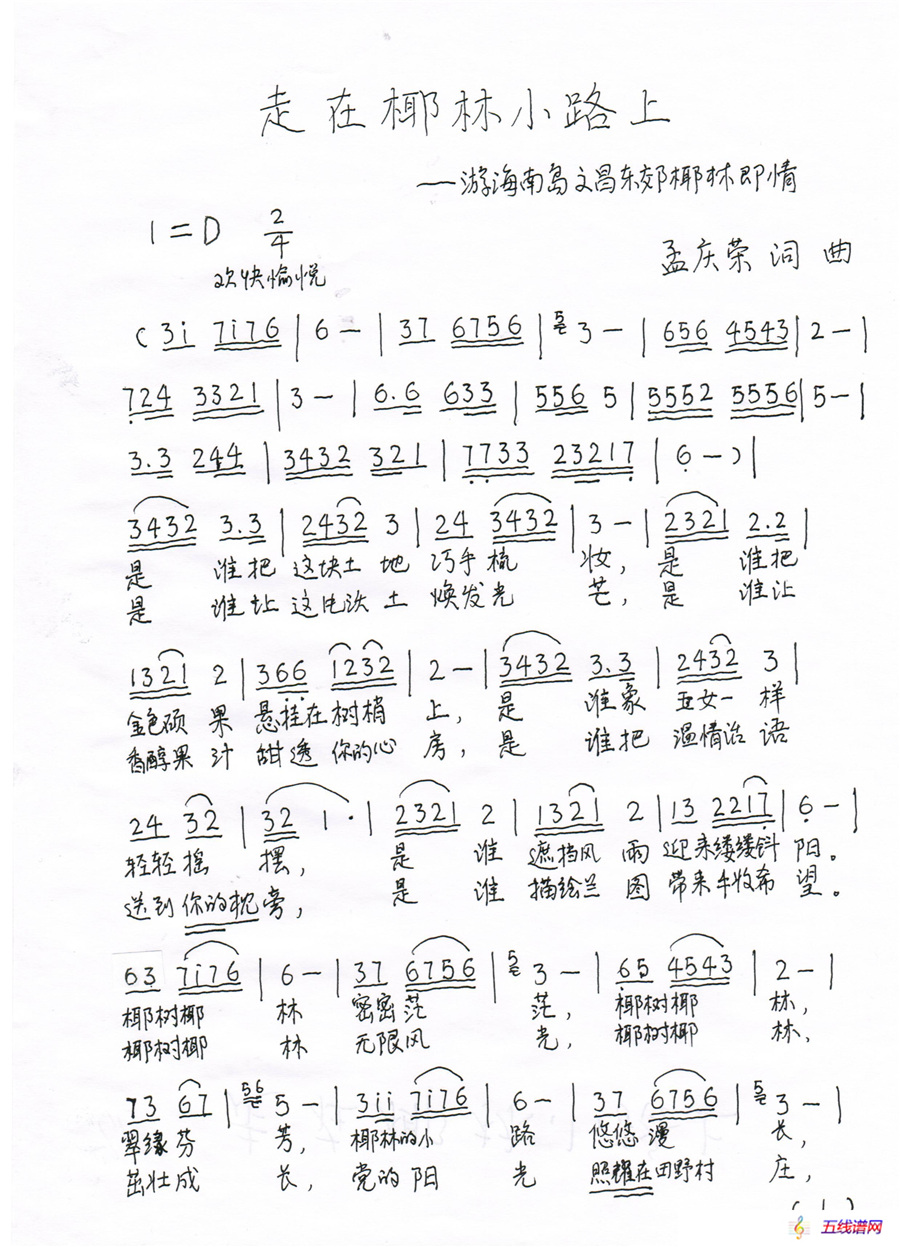 走在椰林小路上
——游海南岛文昌东郊椰林即情
1=D 2/4
孟庆荣 词 曲
欢快愉悦
( 3i 7i76 | 6 — | 37 6756 | 5 3 — | 656 4543 | 2 — |
724 3321 | 3 — | 6.6 633 | 556 5 | 5552 5556 | 5 — |
3.3 244 | 3432 321 | 7733 23217 | 6 — ) |
3432 3.3 | 2432 3 | 24 3432 | 3 — | 2321 2.2 |
是 谁把 这块土 地 巧手梳 妆, 是 谁把
是 谁让 这片沃 土 焕发光 芒, 是 谁让
1321 2 | 366 1232 | 2 — | 3432 3.3 | 2432 3 |
金色硕 果 悬挂在树梢 上, 是 谁象 五女一 样
香醇果 汁 甜透你的心 房, 是 谁把 温情话 语
24 32 | 32 1 · | 2321 2 | 1321 2 | 13 2217 | 6 — |
轻轻摇 摆, 是 谁 遮挡风 雨 迎来缕缕斜 阳。
送到你的枕旁, 是 谁 描绘兰 图 带来丰收希 望。
63 7i76 | 6 — | 37 6756 | 5 3 — | 65 4543 | 2 — |
椰树椰 林 密密茫 茫, 椰树椰 林,
椰树椰 林 无限风 光, 椰树椰 林,
73 67 | 56 5 — | 3ii 7i76 | 6 — | 37 6756 | 5 3 — |
翠缘芬 芳, 椰林的小 路 悠悠漫 长,
茁壮成 长, 党的阳 光 照耀在田野村 庄,
(1)
五线谱网